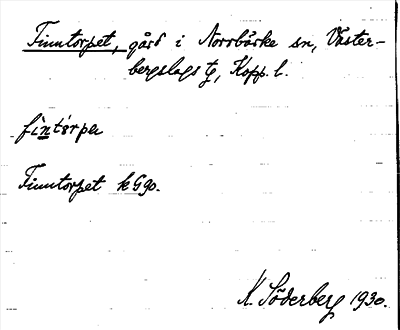 Finntorpet, gård i Norrbärke sn, Väster-
bergslags tg, Kopp. l.
fìntórper
Finntorpet kG90.
K. Söderberg 1930.